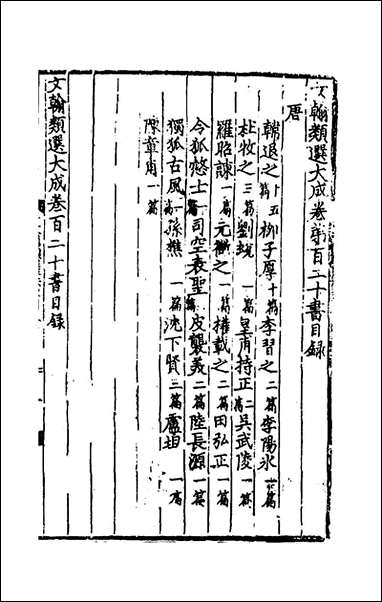 文翰類選大成卷第百二十書目録
唐
韓退之十五篇 柳子厚十篇 李習之二篇 李陽冰一篇
杜牧之三篇 劉蛻一篇 皇甫持正二篇 吳武陵
羅昭諫一篇 元微之一篇 權載之二篇 田弘正一篇
令狐愨士一篇 司空表聖 皮襲美二篇 陸長源一篇
獨狐古風一篇 孫樵一篇 沈下賢三篇 盧坦一篇
陳章甫一篇
文翰類選大成卷百二十書目録